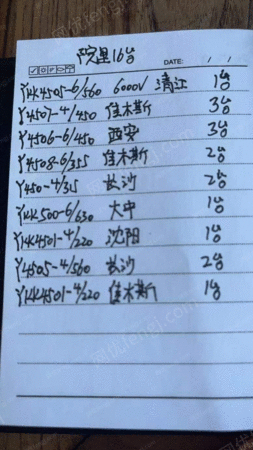 院里16台
DATE: / /
YKK4505-6/560 6000V 清江 1台
Y4507-4/450 佳木斯 3台
Y4506-6/450 西安 3台
Y4508-6/355 佳木斯 2台
Y450-4/315 长沙 2台
YKK500-6/630 大中 1台
YKK4501-4/220 沈阳 1台
Y4505-4/560 长沙 2台
YKK4501-4/220 佳木斯 1台